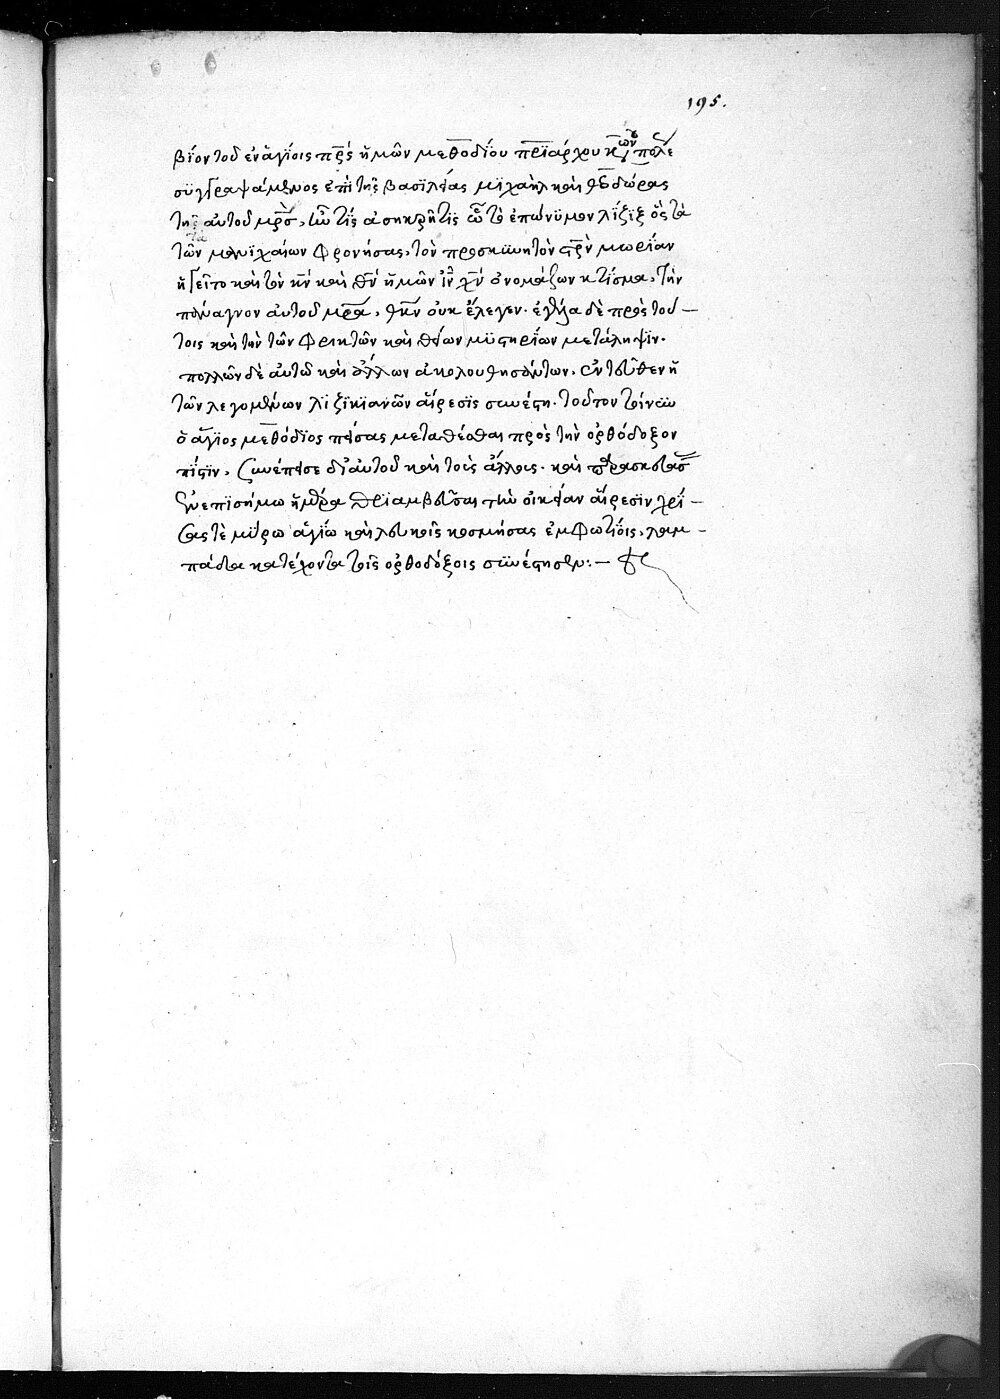 195.
βίον τοῦ ἐν ἁγίοις πρ̅ς ἡμῶν μεθοδίου πριάρχου κωνπόλε
συγγραψάμενος ἐπὶ τῆς βασιλείας μιχαὴλ καὶ θεοδώρας
τῆς αὐτοῦ μρ̅ς, ἦν τίς ἀσηκρῆτις ὧ τὸ ἐπώνυμον λίζιξ ὃς τὰ
τῶν μανιχαίων φρονήσας, τὸν προσκυνητὸν μωρίαν
ἡγεῖτο καὶ τὸν κ̅ν καὶ θ̅ν ἡμῶν ι̅ν χ̅ν ὀνομάζων κτίσμα, τὴν
πάναγνον αὐτοῦ μρ̅α, θκ̅ν οὐκ ἔλεγεν. ἐγέλα δὲ πρὸς τού –
τοις καὶ τὴν τῶν φρικτῶν καὶ θείων μυστηρίων μετάληψιν.
πολλῶν δὲ αὐτῶ καὶ ἄλλων ἀκολουθησάντων, ἐντεῦθεν ἡ
τῶν λεγομένων λιζικιανῶν αἵρεσις συνέστη. τοῦτον τοίνυν
ὁ ἅγιος μεθόδιος πείσας μεταθέσθαι πρὸς τὴν ὀρθόδοξον
πίστιν, συνέπεισε δι αὐτοῦ καὶ τοὺς ἄλλους. καὶ παρασκευάσας
ἐν ἐπισήμω ἡμέρα θριαμβεῦσαι τὴν οἰκείαν αἵρεσιν χρί –
σας τὲ μύρω ἁγίω καὶ λευκοῖς κοσμήσας ἐμφωτίοις, λαμ –
πάδα κατέχοντα τοῖς ὀρθοδόξοις συνέστησεν: –